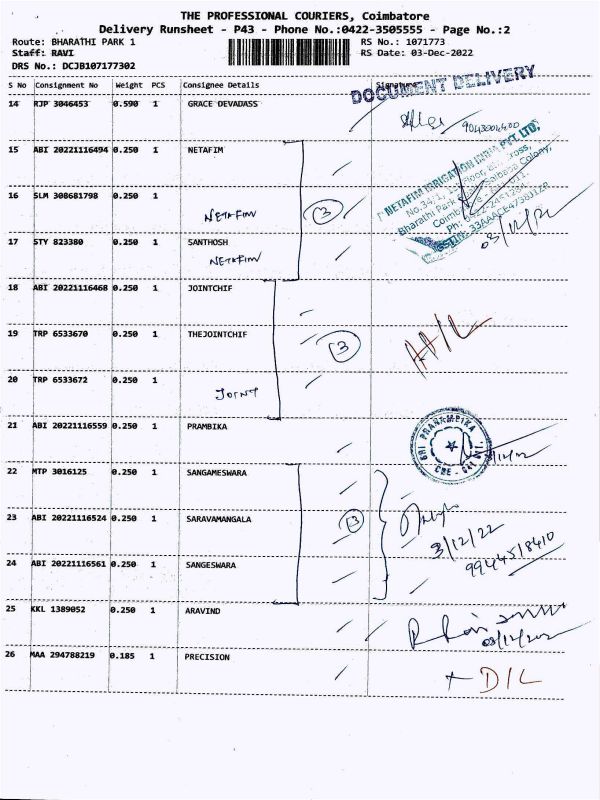 THE PROFESSIONAL COURIERS, Coimbatore
Delivery Runsheet - P43 - Phone No.:0422-3505555 - Page No.:2
Route: BHARATHI PARK 1 RS No.: 1071773
Staff: RAVI RS Date: 03-Dec-2022
DRS No.: DCJB107177302
DOCUMENT DELIVERY
S No Consignment No Weight PCS Consignee Details Signature
14 RJP 3046453 0.590 1 GRACE DEVADASS
9043004400
15 ABI 20221116494 0.250 1 NETAFIM
NETAFIM IRRIGATION INDIA PVT. LTD,
16 SLM 308681798 0.250 1
NETAFIM 3
03/12/22
17 STY 823380 0.250 1 SANTHOSH
NETAFIM
18 ABI 20221116468 0.250 1 JOINTCHIF
19 TRP 6533670 0.250 1 THEJOINTCHIF
3
20 TRP 6533672 0.250 1
JOINT
21 ABI 20221116559 0.250 1 PRAMBIKA
22 MTP 3016125 0.250 1 SANGAMESWARA
23 ABI 20221116524 0.250 1 SARAVAMANGALA
3
3/12/22
9944518410
24 ABI 20221116561 0.250 1 SANGESWARA
25 KKL 1389052 0.250 1 ARAVIND
26 MAA 294788219 0.185 1 PRECISION
D/L